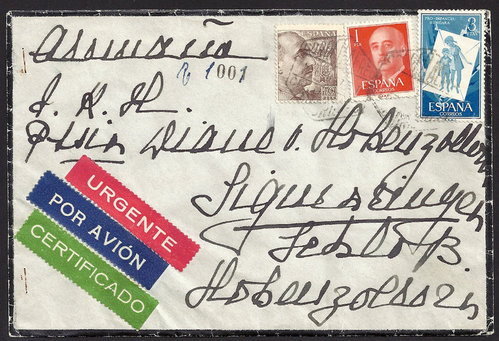 Alemania
1001
ESPAÑA
1 PTA
ESPAÑA
CORREOS
PRO-INFANCIA HUNGARA
3
ESPAÑA
CORREOS
S. K. H.
Diane v. Hohenzollern
Sigmaringen
Schloß.
Hohenzollern
URGENTE
POR AVIÓN
CERTIFICADO